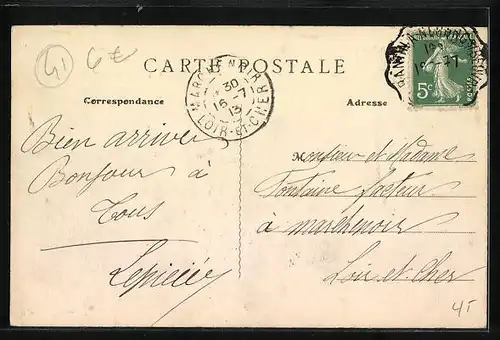 41 6€
CARTE POSTALE
Correspondance
Adresse
MARCHENOIR
30
16 - 7
13
LOIR-ET-CHER
5c
Bien arriver
Bonjour à
Tous
Monsieur et Madame
Fontaine facteur
à marchenoir
Loir et Cher